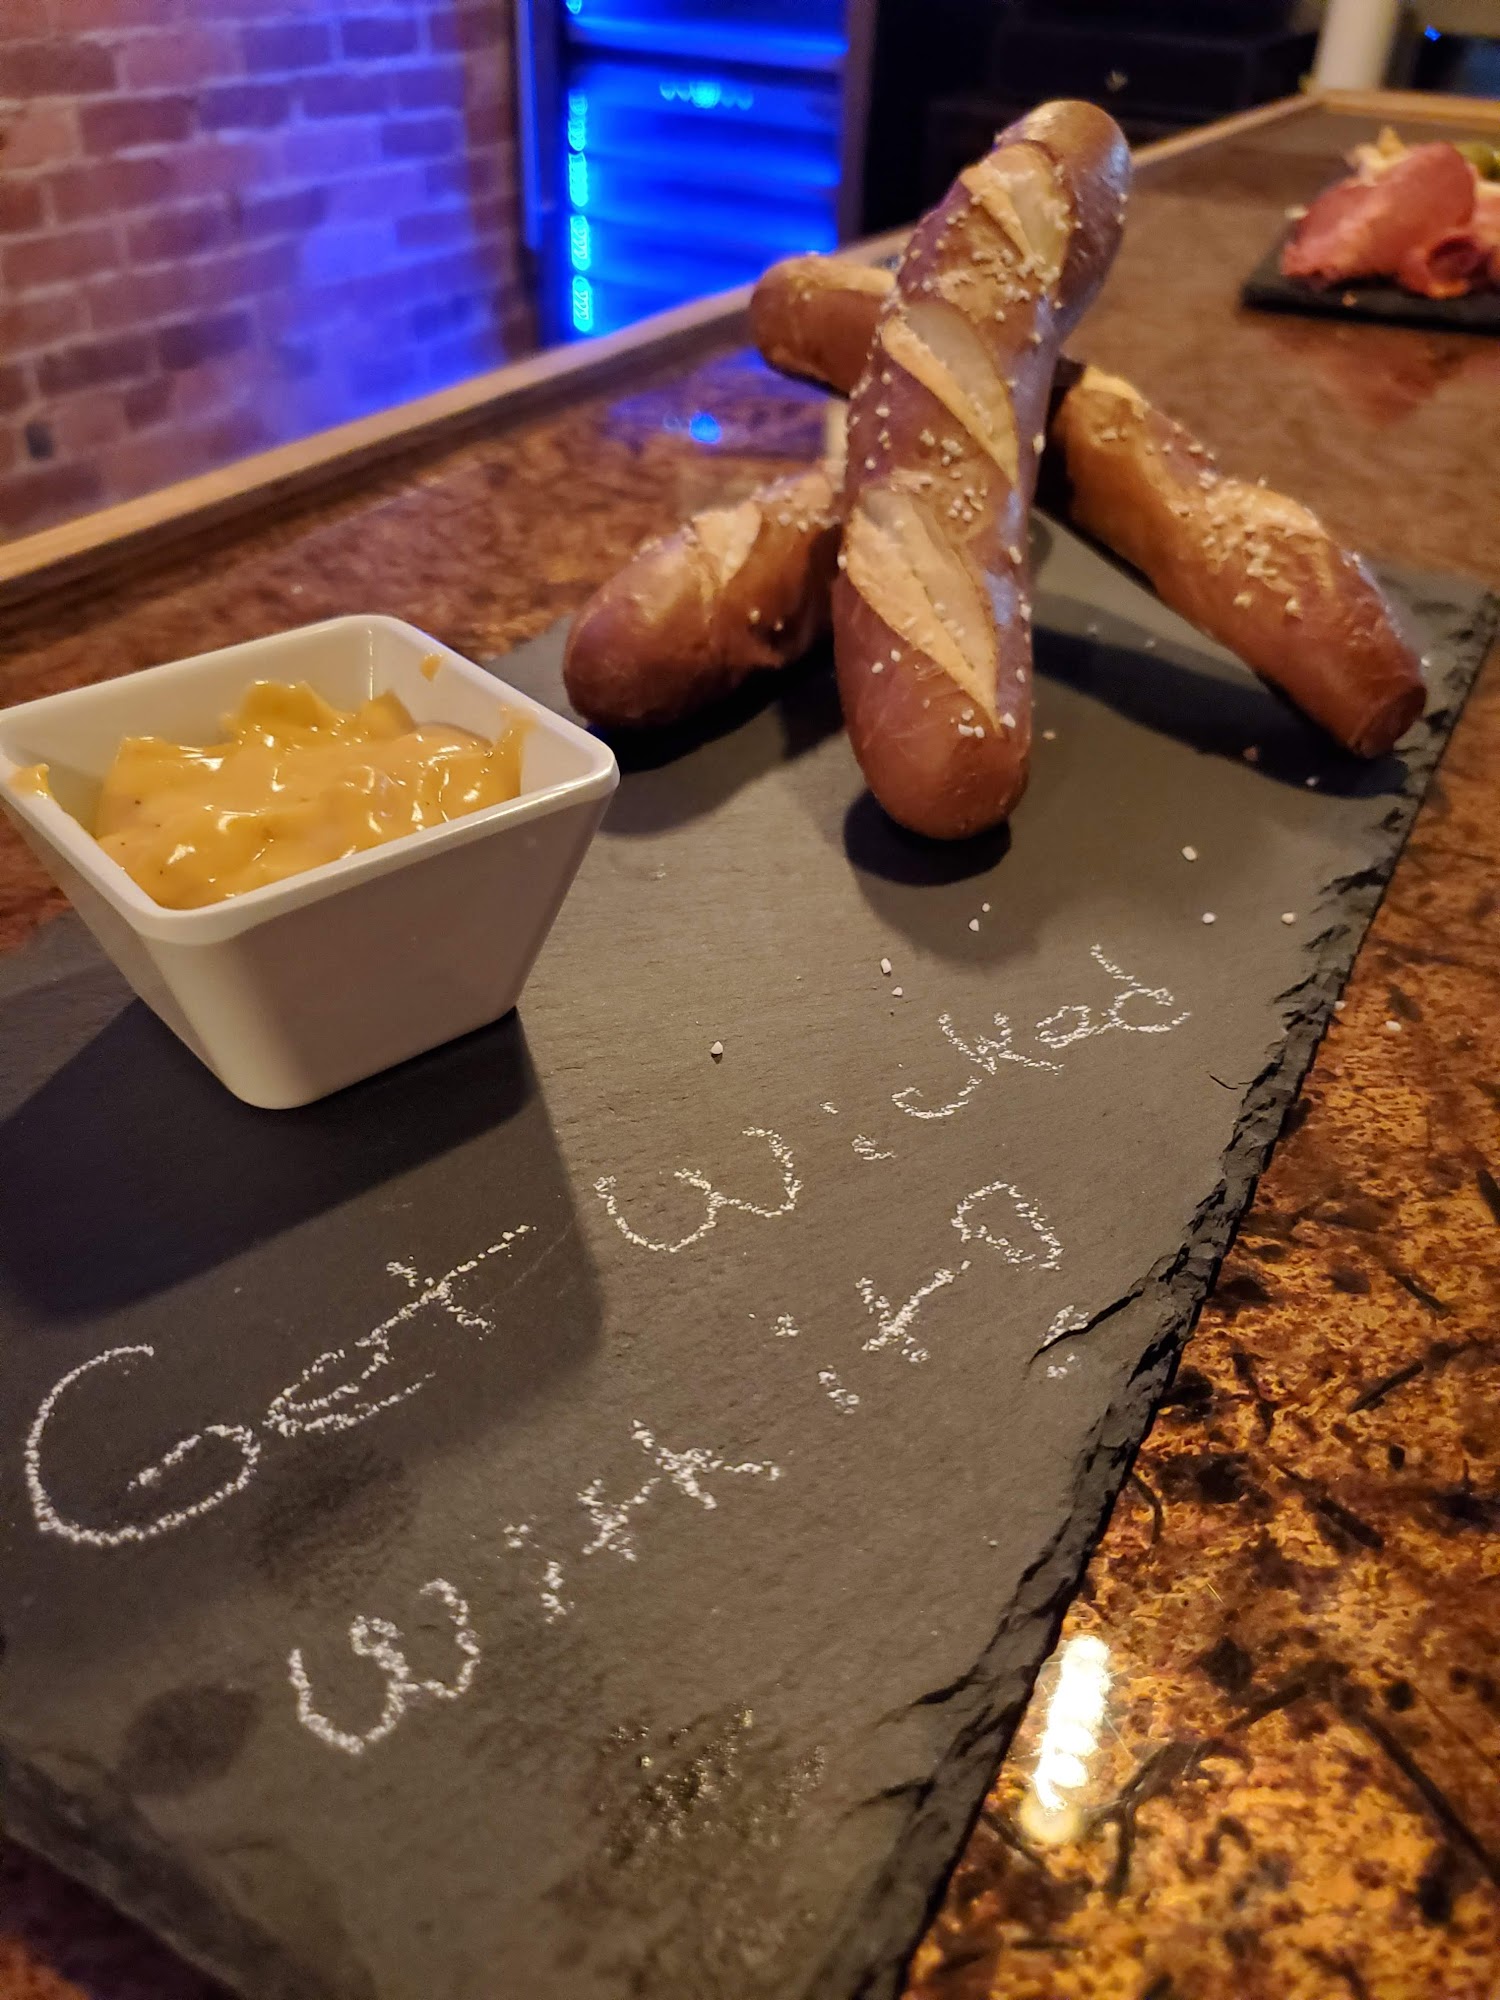 Get Wicked
With it!